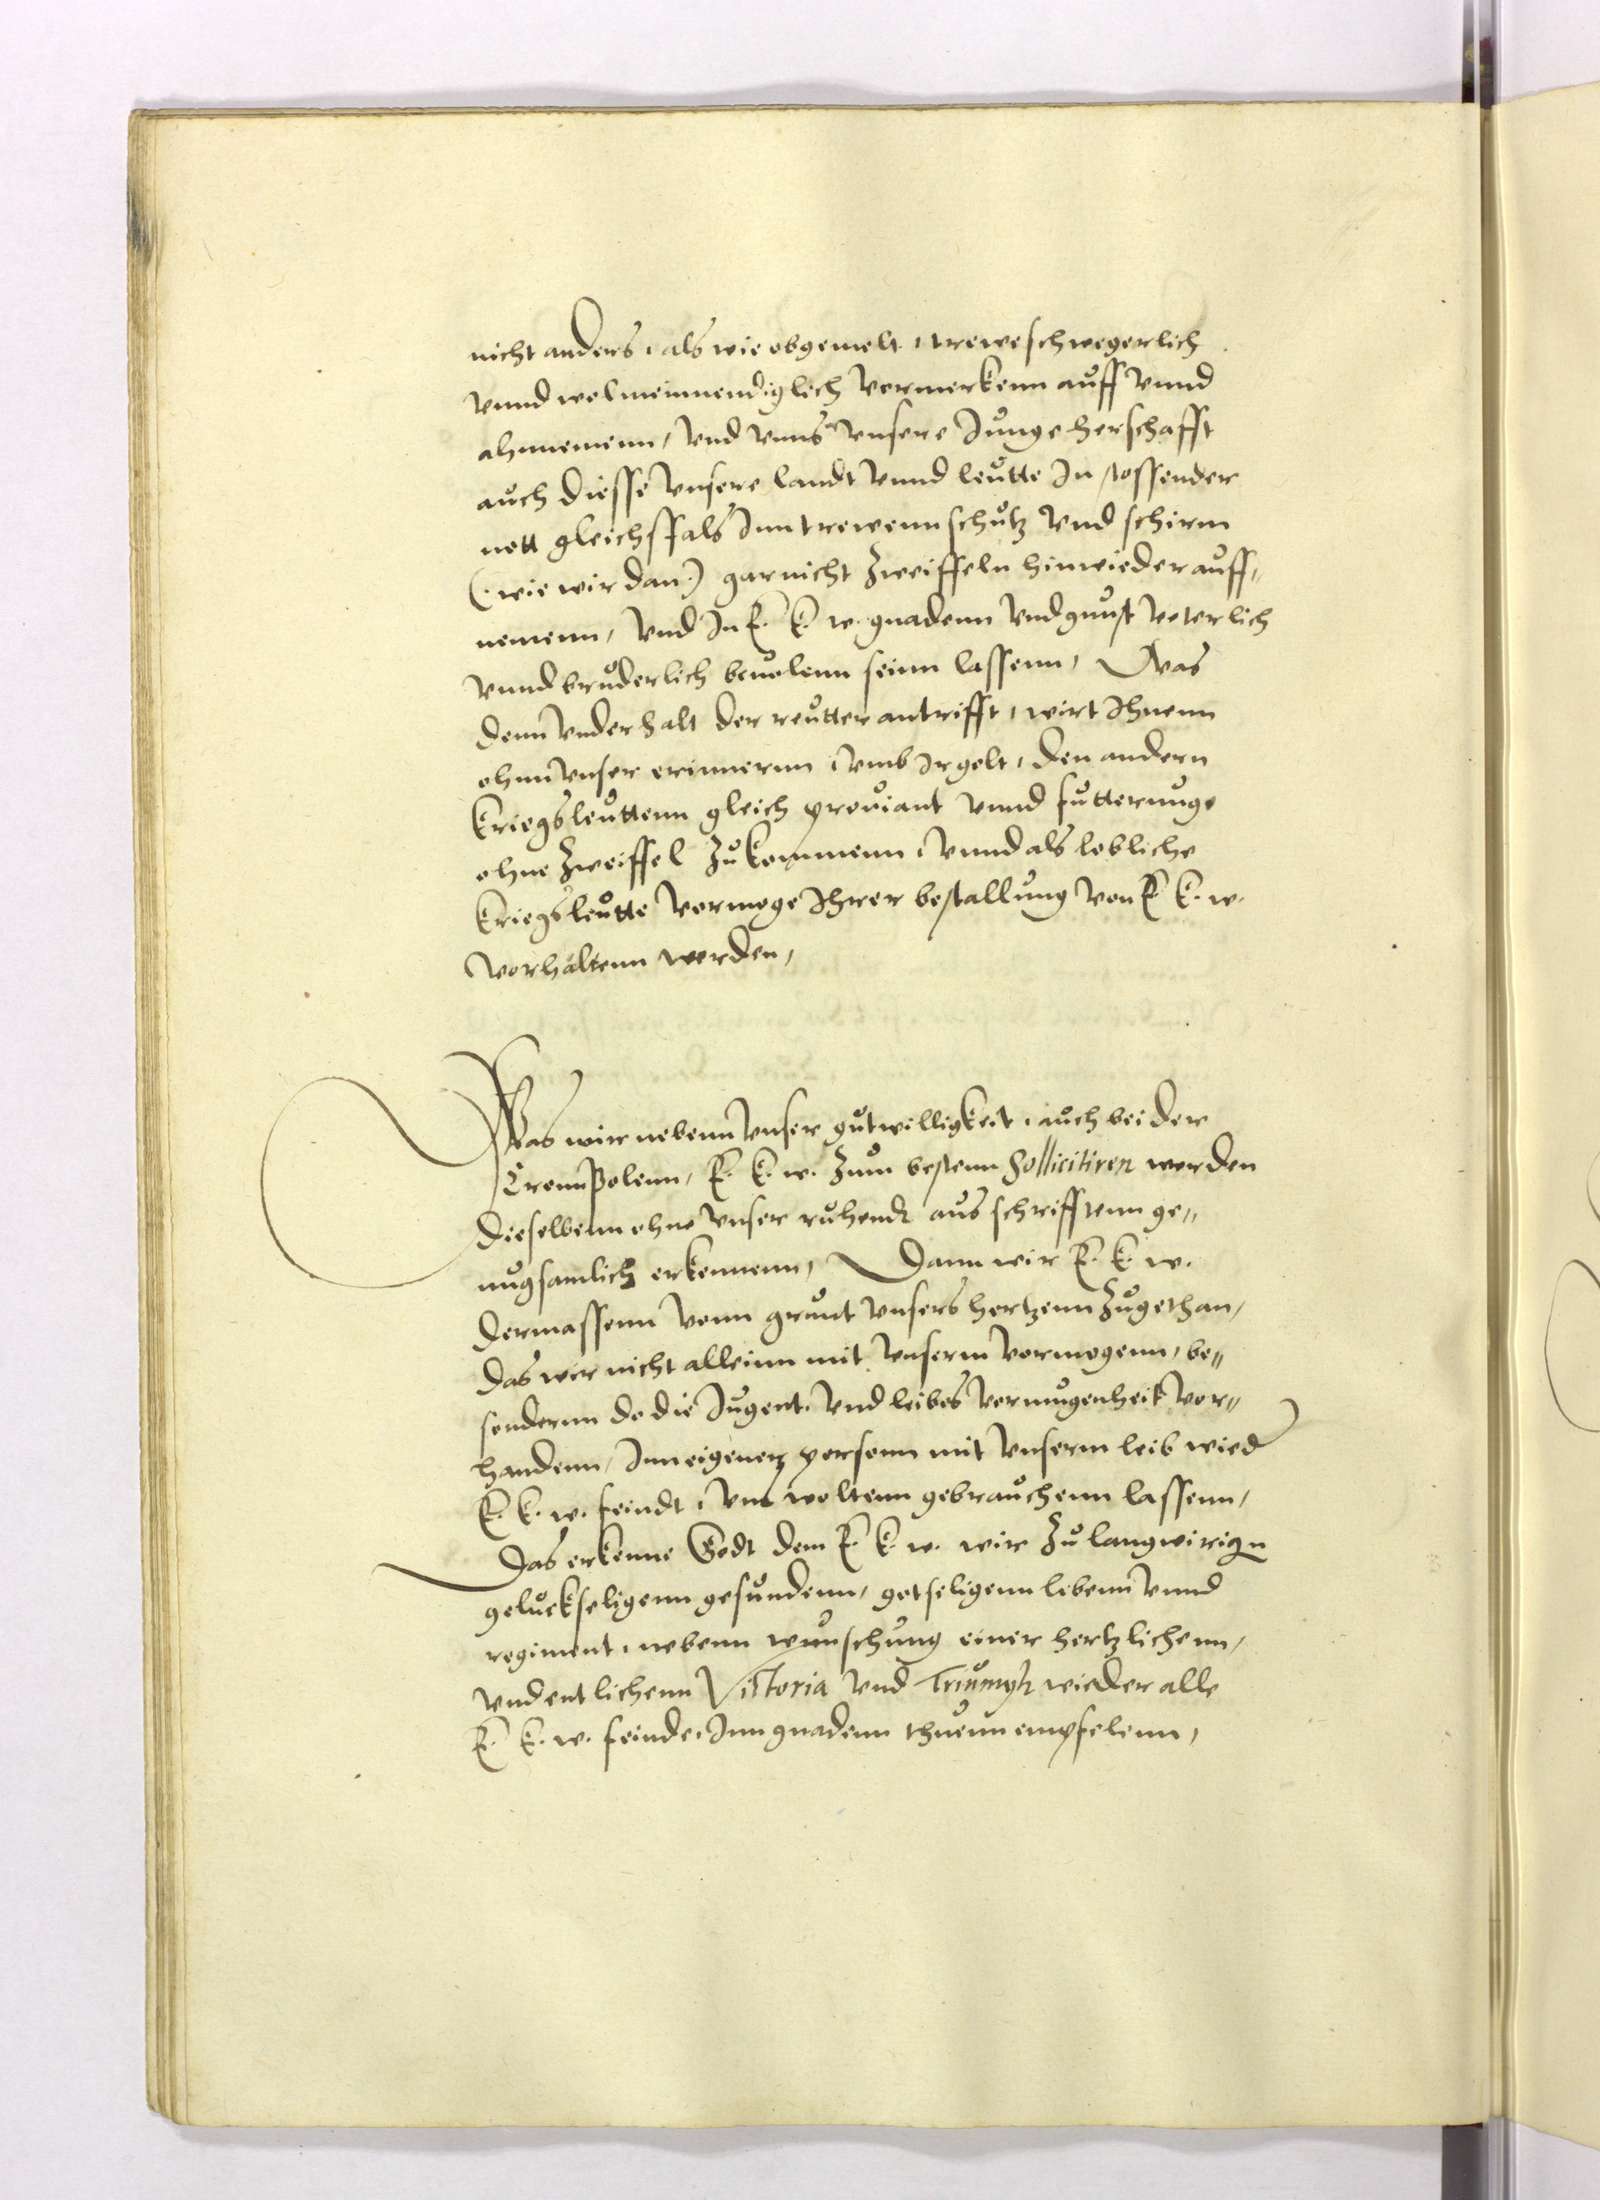 nicht anders, als wie obgemelt, treweschwegerlich
vnnd wolmeinnendiglich vermerkenn auff vnnd
ahnnemenn, vnd vnns vnsere Junge herschafft
auch diesse vnsere landt vnnd leutte In stossender
nott gleichffals Inn trewenn schutz vnd schirm
(: wie wir dan :) gar nicht zweiffeln hinwiederauff„
nemenn, vnd In E. k. w. gnadenn vnd gunst veterlich
vnnd bruderlich beuolenn seinn lassenn, Was
denn vnderhalt der reutter antrifft, wirt Ihnenn
ohnn vnser erinnernn, vmb Ir gelt, den andern
kriegsleuttenn gleich prouiant vnnd futterunge
ohne zweiffel zukommenn, vnnd als lobliche
kriegsleutte vermoge Ihrer bestallung von E k. w.
vorhaltenn werden,
Was wir nebenn vnser gutwilligkeit, auch bei der
Cronn Polenn, E. k. w. zum bestenn Sollicitiren werden
dieselbenn ohne vnser ruhendt aus schrifftenn ge„
nugsamlich erkennenn, Dann wir E. k. w.
dermassenn vonn grunt vnsers hertzenn zugethan,
das wir nicht alleinn mit vnserm vormogenn, be„
sondernn do die Jugent vnd leibes vermugenheit vor„
handenn, Inn eigener personn mit vnserm leib wied
E. k. w. feindt, vns woltenn gebrauchenn lassenn,
Das erkenne Godt dem E. k. w. wir zu langwirign
geluckseligenn gesundenn, gotseligenn lebenn vnnd
regiment, nebenn wunschung einer hertzlichenn,
vnd entlichenn Victoria vnd Triumph wieder alle
E. k. w. feinde, Inn gnadenn thuenn empfelenn,